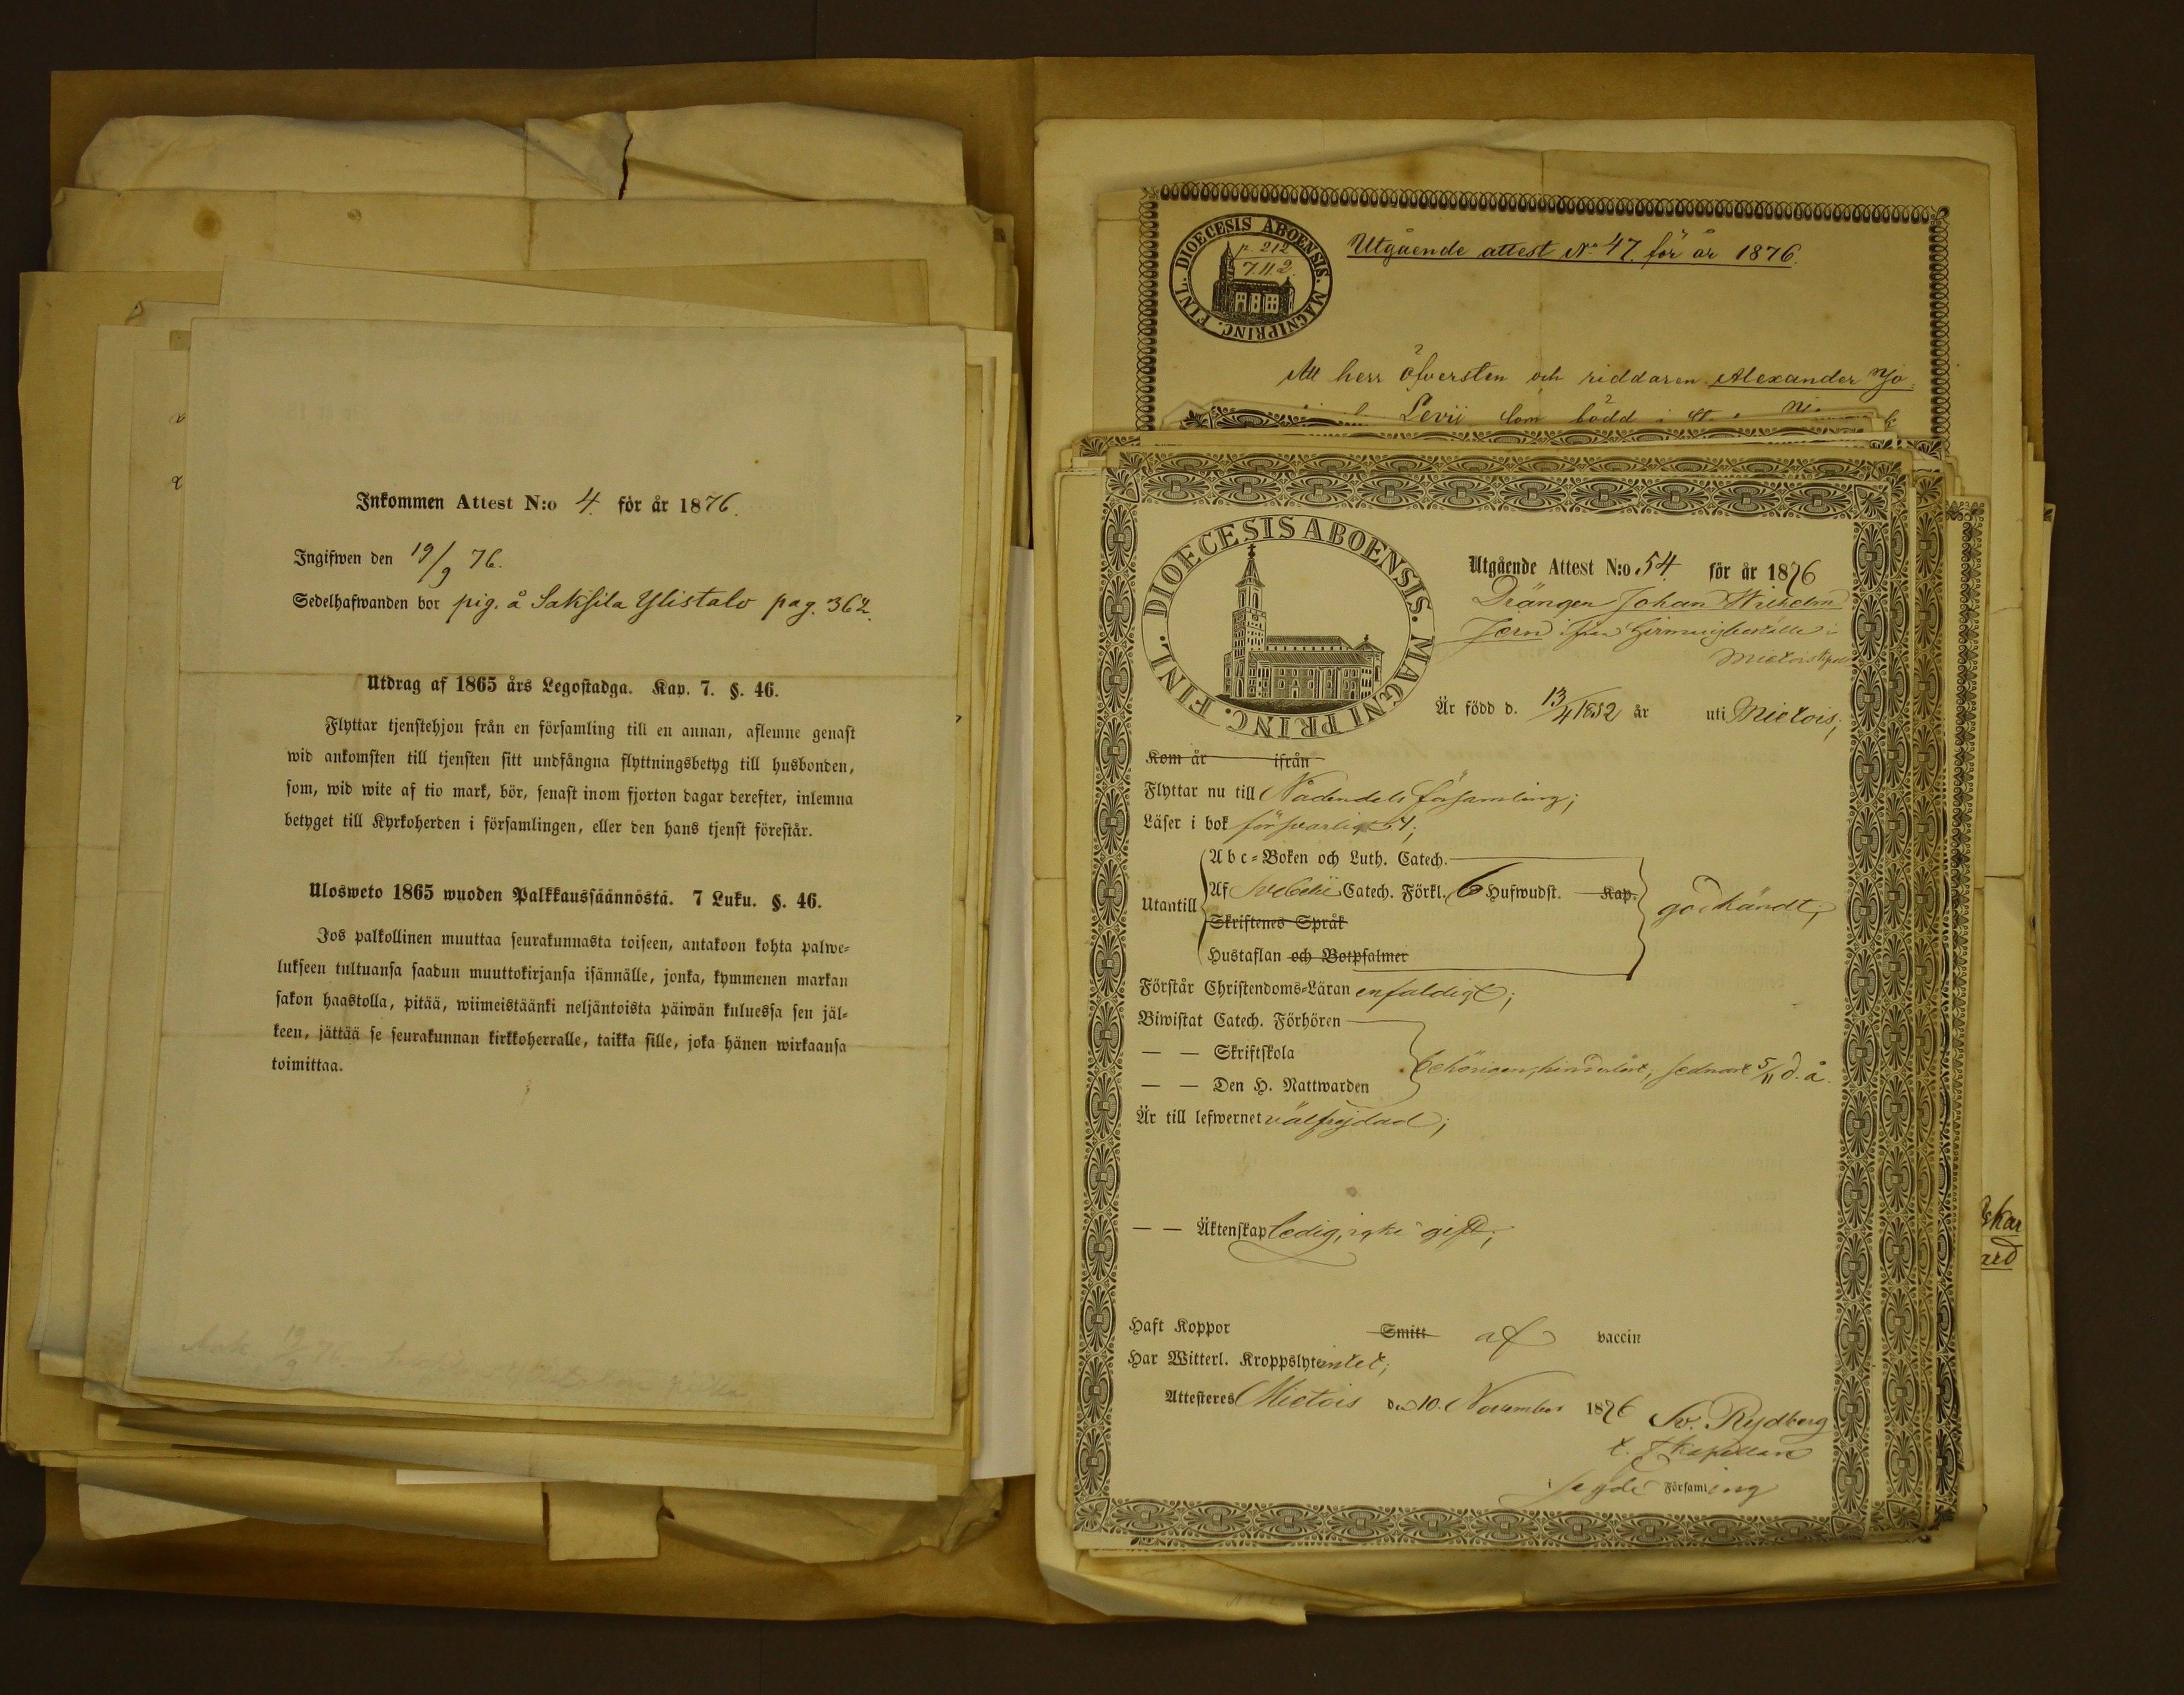 Inkommen Attest N:o 4. för år 1876.
Ingifwen den 19/9 76.
Sedelhafwanden bor pig. å Saksila Ylistalo pag. 362.
Utdrag af 1865 års Legostadga. Kap. 7. §. 46.
Flyttar tjenstehjon från en församling till en annan, aflemne genast
wid ankomsten till tjensten sitt undfångna flyttningsbetyg till husbonden,
som, wid wite af tio mark, bör, senast inom fjorton dagar derefter, inlemna
betyget till Kyrkoherden i församlingen, eller den hans tjenst förestår.
Ulosweto 1865 wuoden Palkkaussäännöstä. 7 Luku. §. 46.
Jos palkollinen muuttaa seurakunnasta toiseen, antakoon kohta palwe-
lukseen tultuansa saadun muuttokirjansa isännälle, jonka, kymmenen markan
sakon haastolla, pitää, wiimeistäänki neljäntoista päiwän kuluessa sen jäl-
keen, jättää se seurakunnan kirkkoherralle, taikka sille, joka hänen wirkaansa
toimittaa.
FINL. DIOECESIS ABOENSIS. MAGNI PRINC.
p. 212
7.11.2.
Utgående attest No 47. för år 1876.
Att herr öfversten och riddaren Alexander
Levii som född i
FINL. DIOECESIS ABOENSIS. MAGNI PRINC.
Utgående Attest N:o 54. för år 1876
Drängen Johan Wilhelm
Jern ifrån
Är född d. 13/4 1852 år uti Mietois;
Kom år ifrån
Flyttar nu till Nådendels församling;
Läser i bok försvarligt
Utantill
Abc-Boken och Luth. Catech.
Af Svebelii Catech. Förkl. 6 Hufwudst. Kap.
Skriftenes Språk
Hustaflan och Botpsalmer
godkändt;
Förstår Christendoms-Läran enfaldigt;
Biwistat Catech. Förhören
— — Skriftskola
— — Den H. Nattwarden
behörigen, sednast 5/11 d. å.
Är till lefwernet välfrejdad;
— — Äktenskap ledig, icke gift;
Haft Koppor Smitt af vaccin
Har Witterl. Kroppslyte intet;
Attesteres Mietois den 10. November 1876 Sv. Rydberg
t. f. Kapellan
Församling
skar
ard